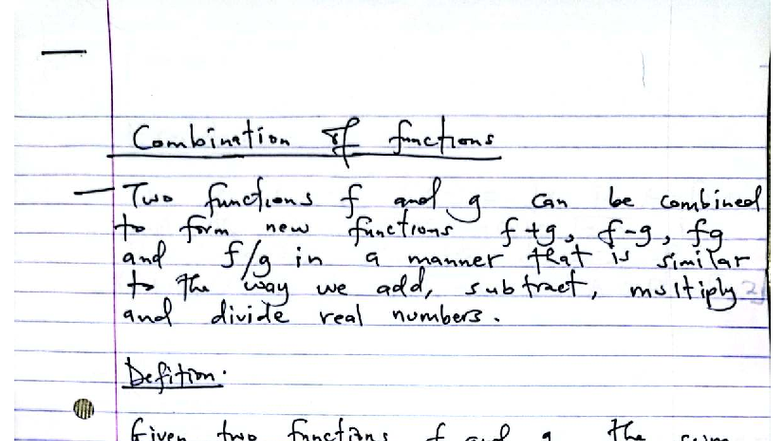 Combination of functions
Two functions f and g can be combined
to form new functions f+g, f-g, fg
and f/g in a manner that is similar
to the way we add, subtract, multiply
and divide real numbers.
Defition.
Given two functions f and g the sum